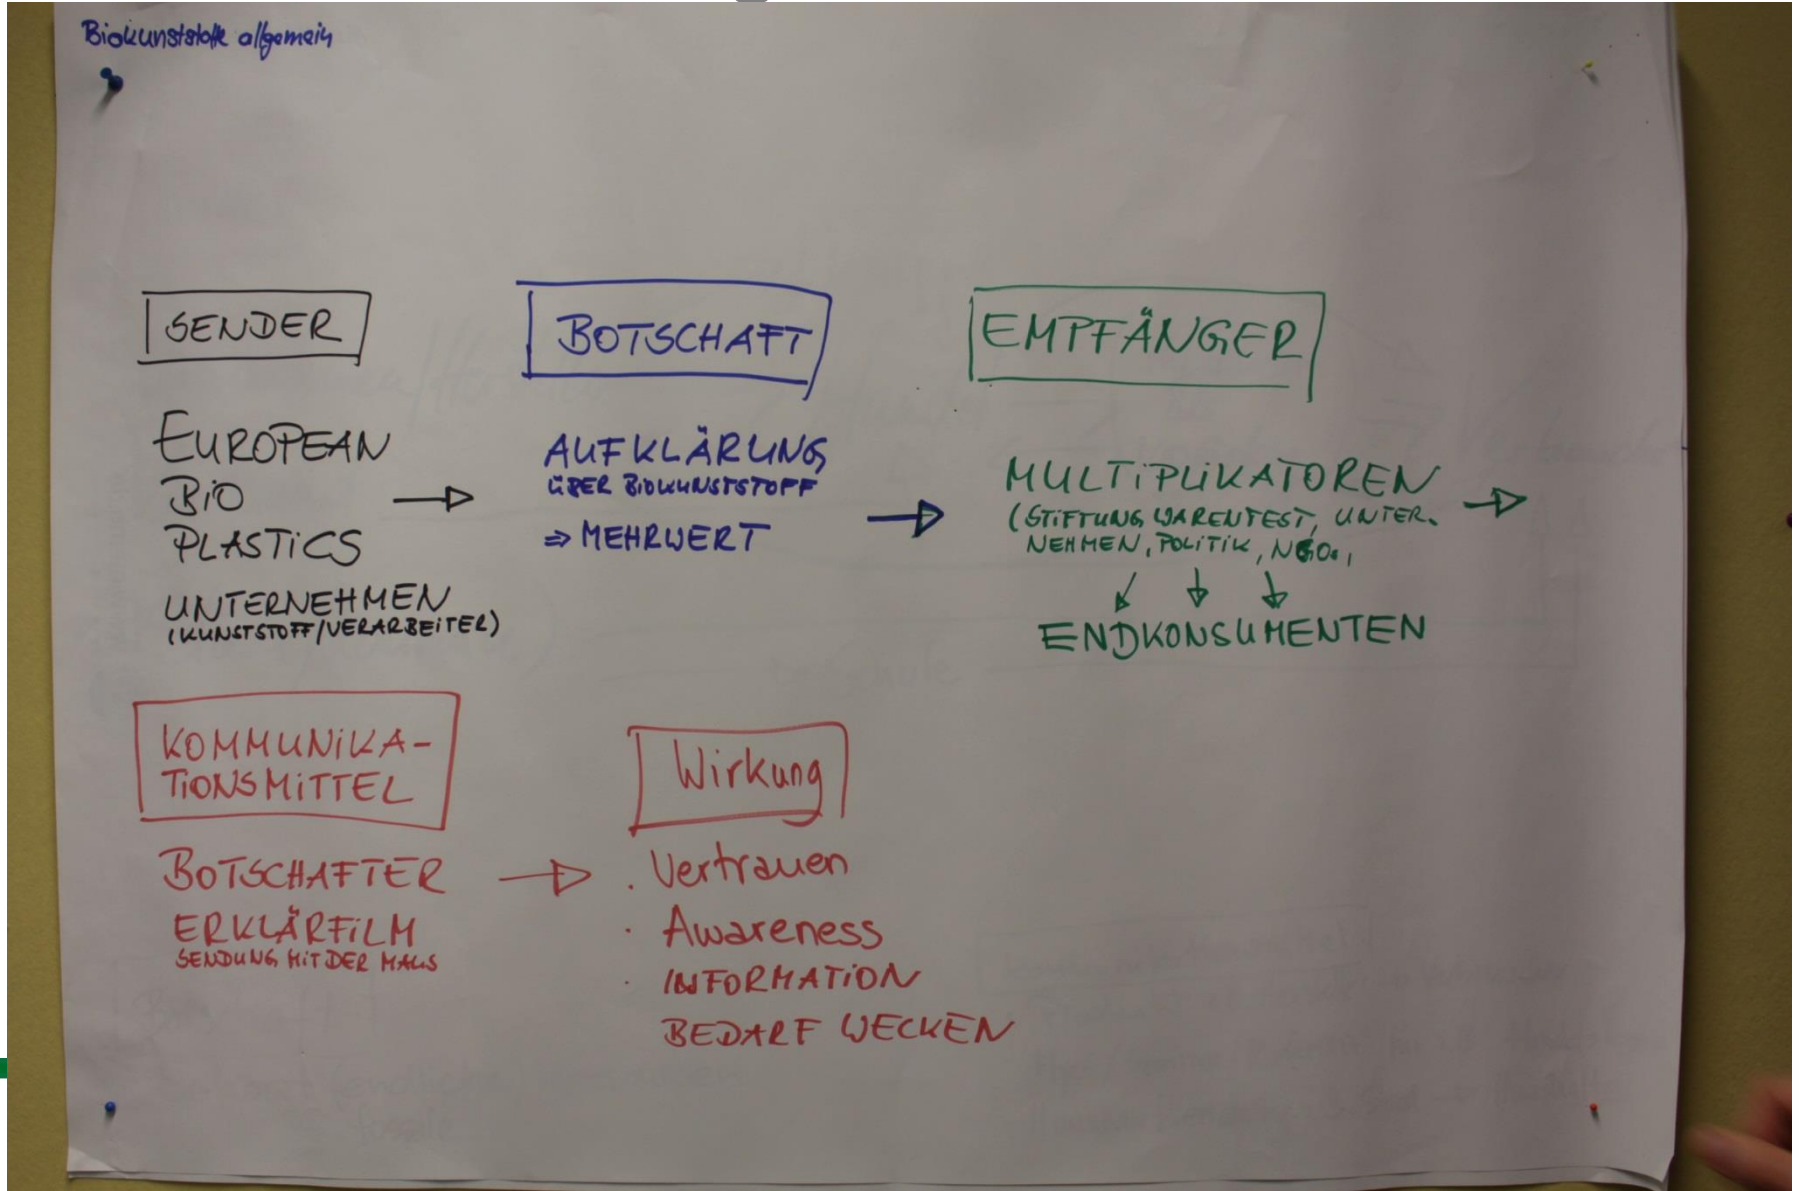 Biokunststoffe allgemein
SENDER
EUROPEAN
BIO
PLASTICS
UNTERNEHMEN
(KUNSTSTOFF/VERARBEITER)
BOTSCHAFT
AUFKLÄRUNG
ÜBER BIOKUNSTSTOFF
⇒ MEHRWERT
EMPFÄNGER
MULTIPLIKATOREN
(STIFTUNG WARENTEST, UNTER-
NEHMEN, POLITIK, NGOs,
ENDKONSUMENTEN
KOMMUNIKA-
TIONSMITTEL
BOTSCHAFTER
ERKLÄRFILM
SENDUNG MIT DER MAUS
Wirkung
· Vertrauen
· Awareness
· INFORMATION
BEDARF WECKEN